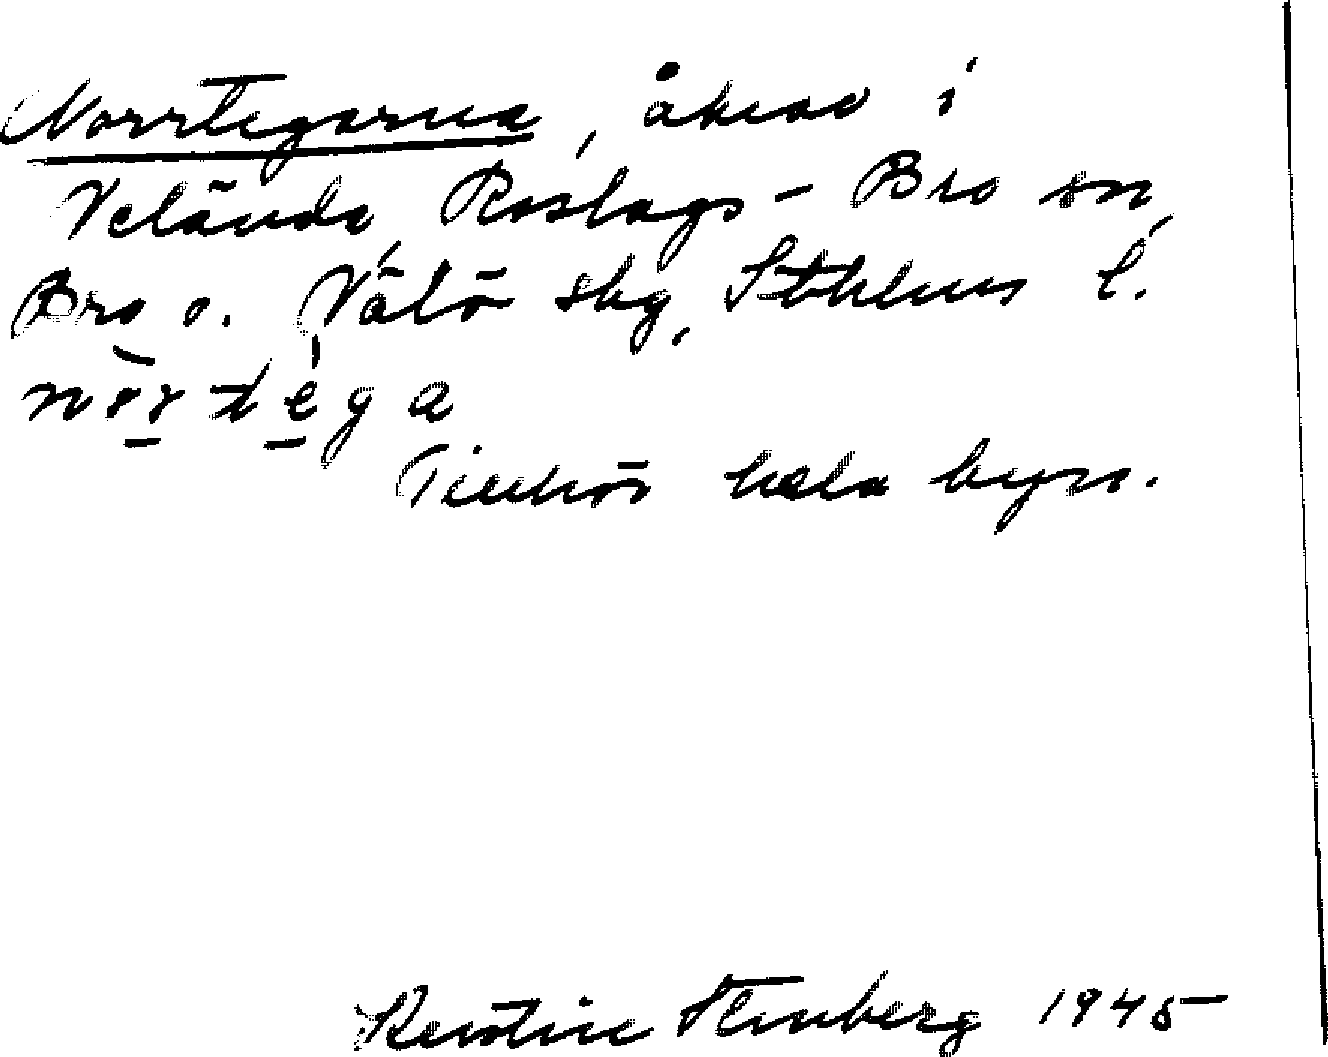 Norrtegarna, åkrar i
Velände, Roslags-Bro sn,
Bro o. Vätö skg, Sthlms l.
nòrtéga
Tillhör hela byn.
Kerstin Stenberg 1945